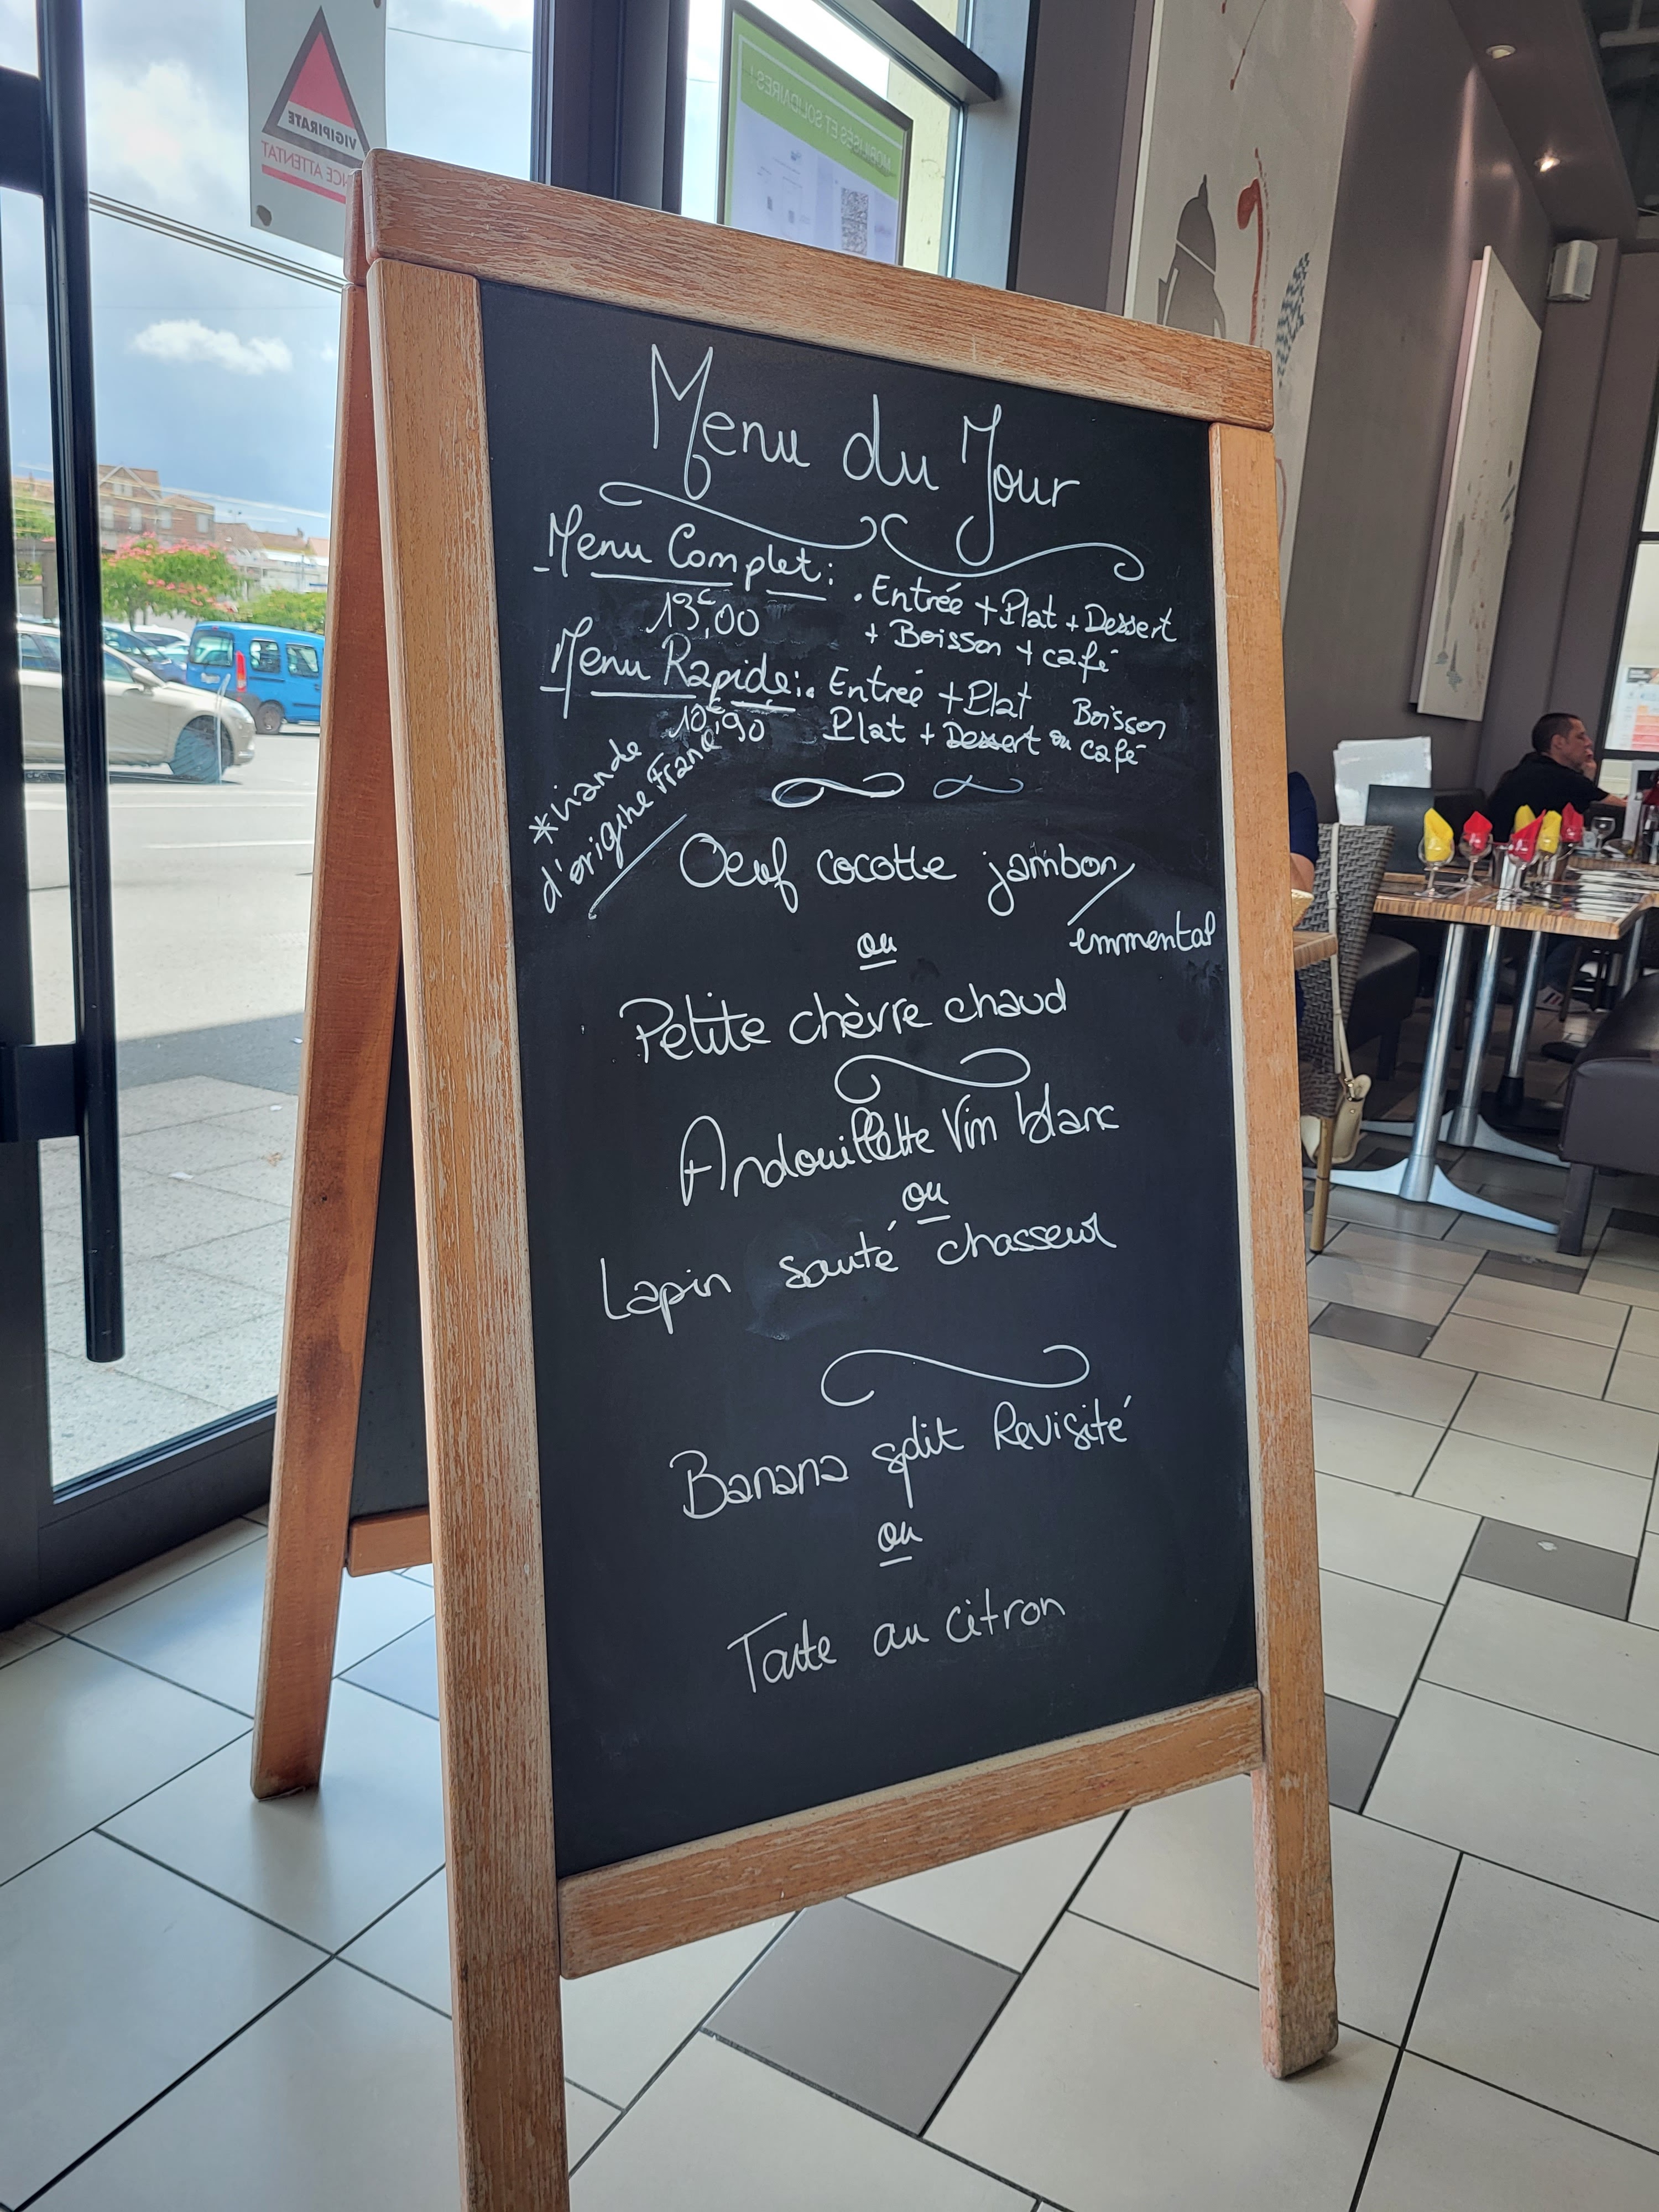 VIGIPIRATE
ATTENTAT
MOBILISÉS ET SOLIDAIRES !
Menu du Jour
Menu Complet: . Entrée + Plat + Dessert
13€,00 + Boisson + café
Menu Rapide: . Entrée + Plat Boisson
10€,90 Plat + Dessert ou café
*viande
d'origine Franç
Oeuf cocotte jambon/
emmental
ou
Petite chèvre chaud
Andouillette Vin blanc
ou
Lapin sauté chasseur
Banana split Revisité
ou
Tarte au citron